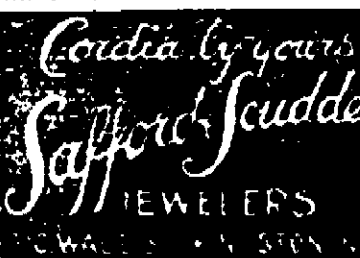 Cordially yours
Safford & Scudde
JEWELERS